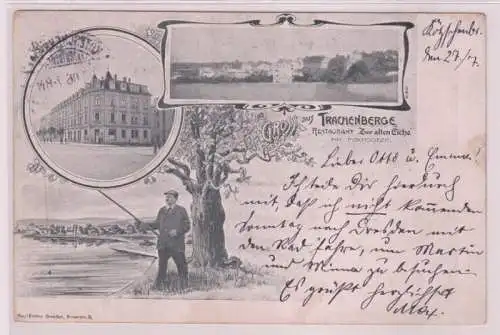 Kötzschenbr.
den 27/7.
Gruss aus
TRACHENBERGE
RESTAURANT "Zur alten Eiche"
Lieber Otto u. Emma!
Ich teile Dir hierdurch
mit, daß ich nicht kommenden
Sonntag nach Dresden mit
dem Rad fahre, um Martin
und Minna zu besuchen.
Es grüßt herzlichst
Max.